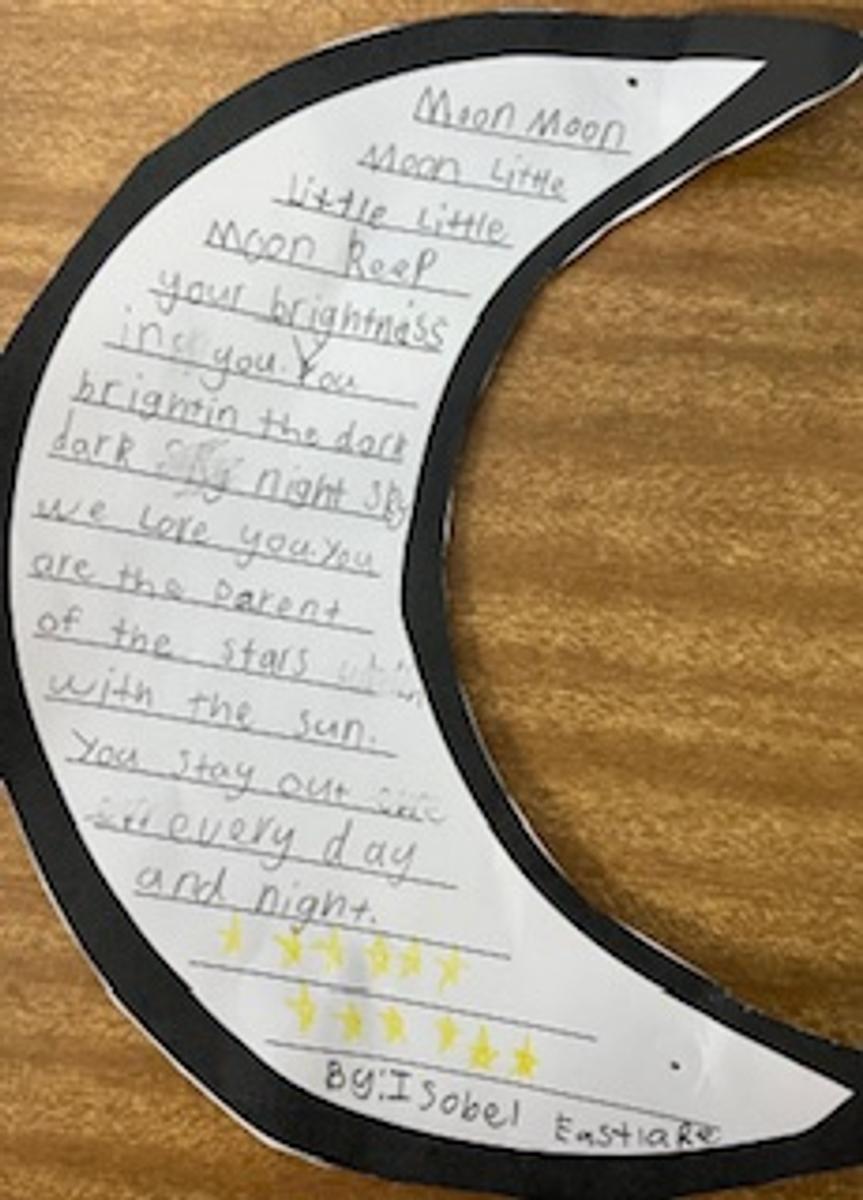 Moon Moon
Moon Little
Little Little
Moon Keep
your brightness
in you. You
brightin the dark
dark night sky
we love you. You
are the parent
of the stars
with the sun.
You stay out
every day
and night.
By: Isobel Eastlake